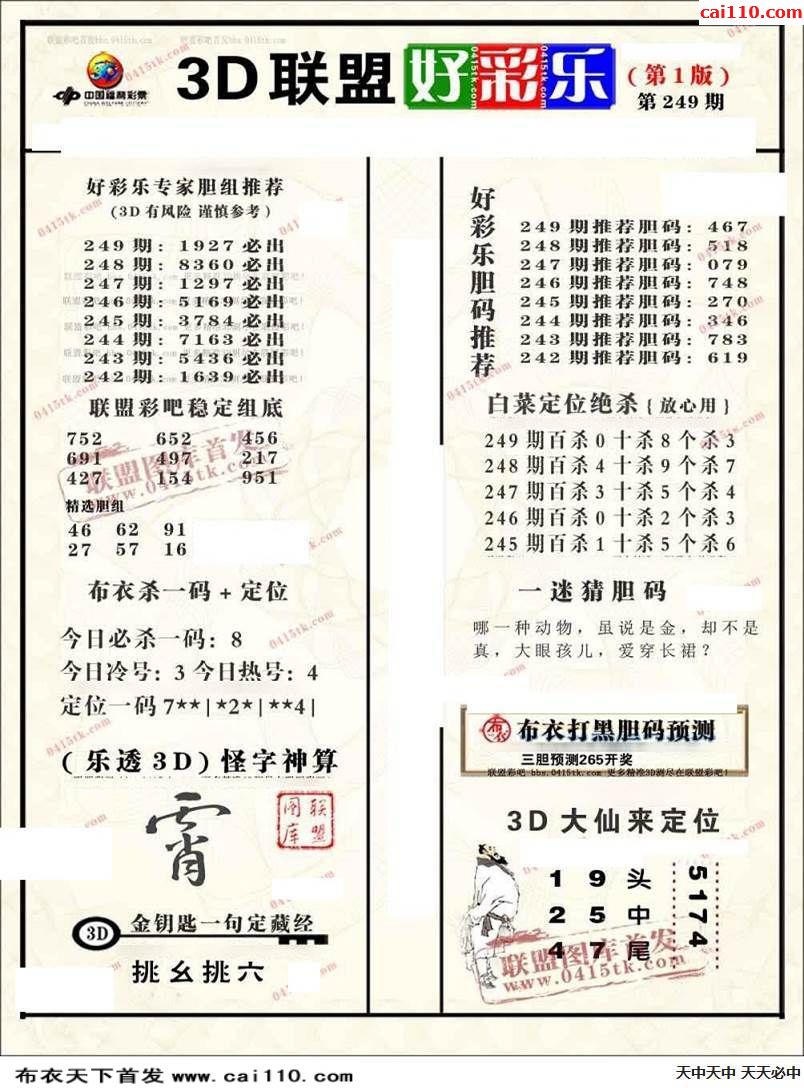 cai110.com
联盟彩吧首发bbs.0415tk.com
中国福利彩票
CHINA WELFARE LOTTERY
3D联盟好彩乐
(第1版)
第249期
好彩乐专家胆组推荐
(3D有风险 谨慎参考)
249期:1927必出
248期:8360必出
247期:1297必出
246期:5169必出
245期:3784必出
244期:7163必出
243期:5436必出
242期:1639必出
联盟彩吧稳定组底
752 652 456
691 497 217
427 154 951
联盟图库首发
www.0415tk.com
精选胆组
46 62 91
27 57 16
布衣杀一码+定位
今日必杀一码:8
今日冷号:3 今日热号:4
定位一码 7**|*2*|**4|
(乐透3D)怪字神算
霄
联盟图库
3D 金钥匙一句定藏经
挑幺挑六
好彩乐胆码推荐
249期推荐胆码:467
248期推荐胆码:518
247期推荐胆码:079
246期推荐胆码:748
245期推荐胆码:270
244期推荐胆码:346
243期推荐胆码:783
242期推荐胆码:619
白菜定位绝杀{放心用}
249期百杀0十杀8个杀3
248期百杀4十杀9个杀7
247期百杀3十杀5个杀4
246期百杀0十杀2个杀3
245期百杀1十杀5个杀6
一迷猜胆码
哪一种动物，虽说是金，却不是
真，大眼孩儿，爱穿长裙？
布衣打黑胆码预测
三胆预测265开奖
联盟彩吧 bbs.0415tk.com 更多精准3D测尽在联盟彩吧!
3D大仙来定位
1 9 头
2 5 中
4 7 尾
5174
联盟图库首发
www.0415tk.com
布衣天下首发 www.cai110.com
天中天中 天天必中